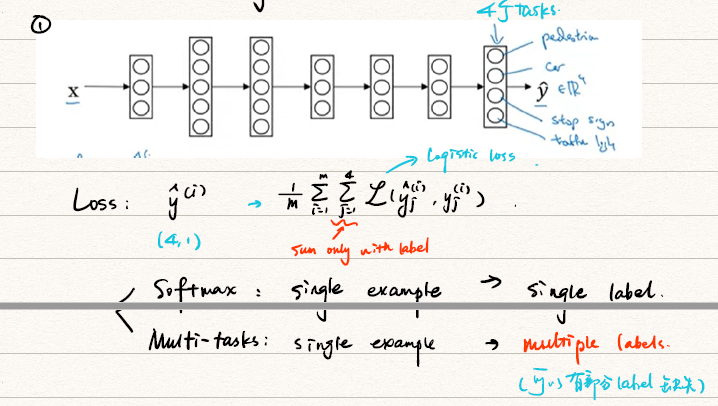 ①
4个tasks.
pedestrian
car
x
ŷ ∈ℝ⁴
stop sign
traffic light
logistic loss
Loss: ŷ⁽ⁱ⁾ → 1/m Σᵢ₌₁ᵐ Σⱼ₌₁⁴ ℒ(ŷⱼ⁽ⁱ⁾, yⱼ⁽ⁱ⁾).
(4,1)
sum only with label
Softmax: single example → single label.
Multi-tasks: single example → multiple labels.
有部分label 缺失)